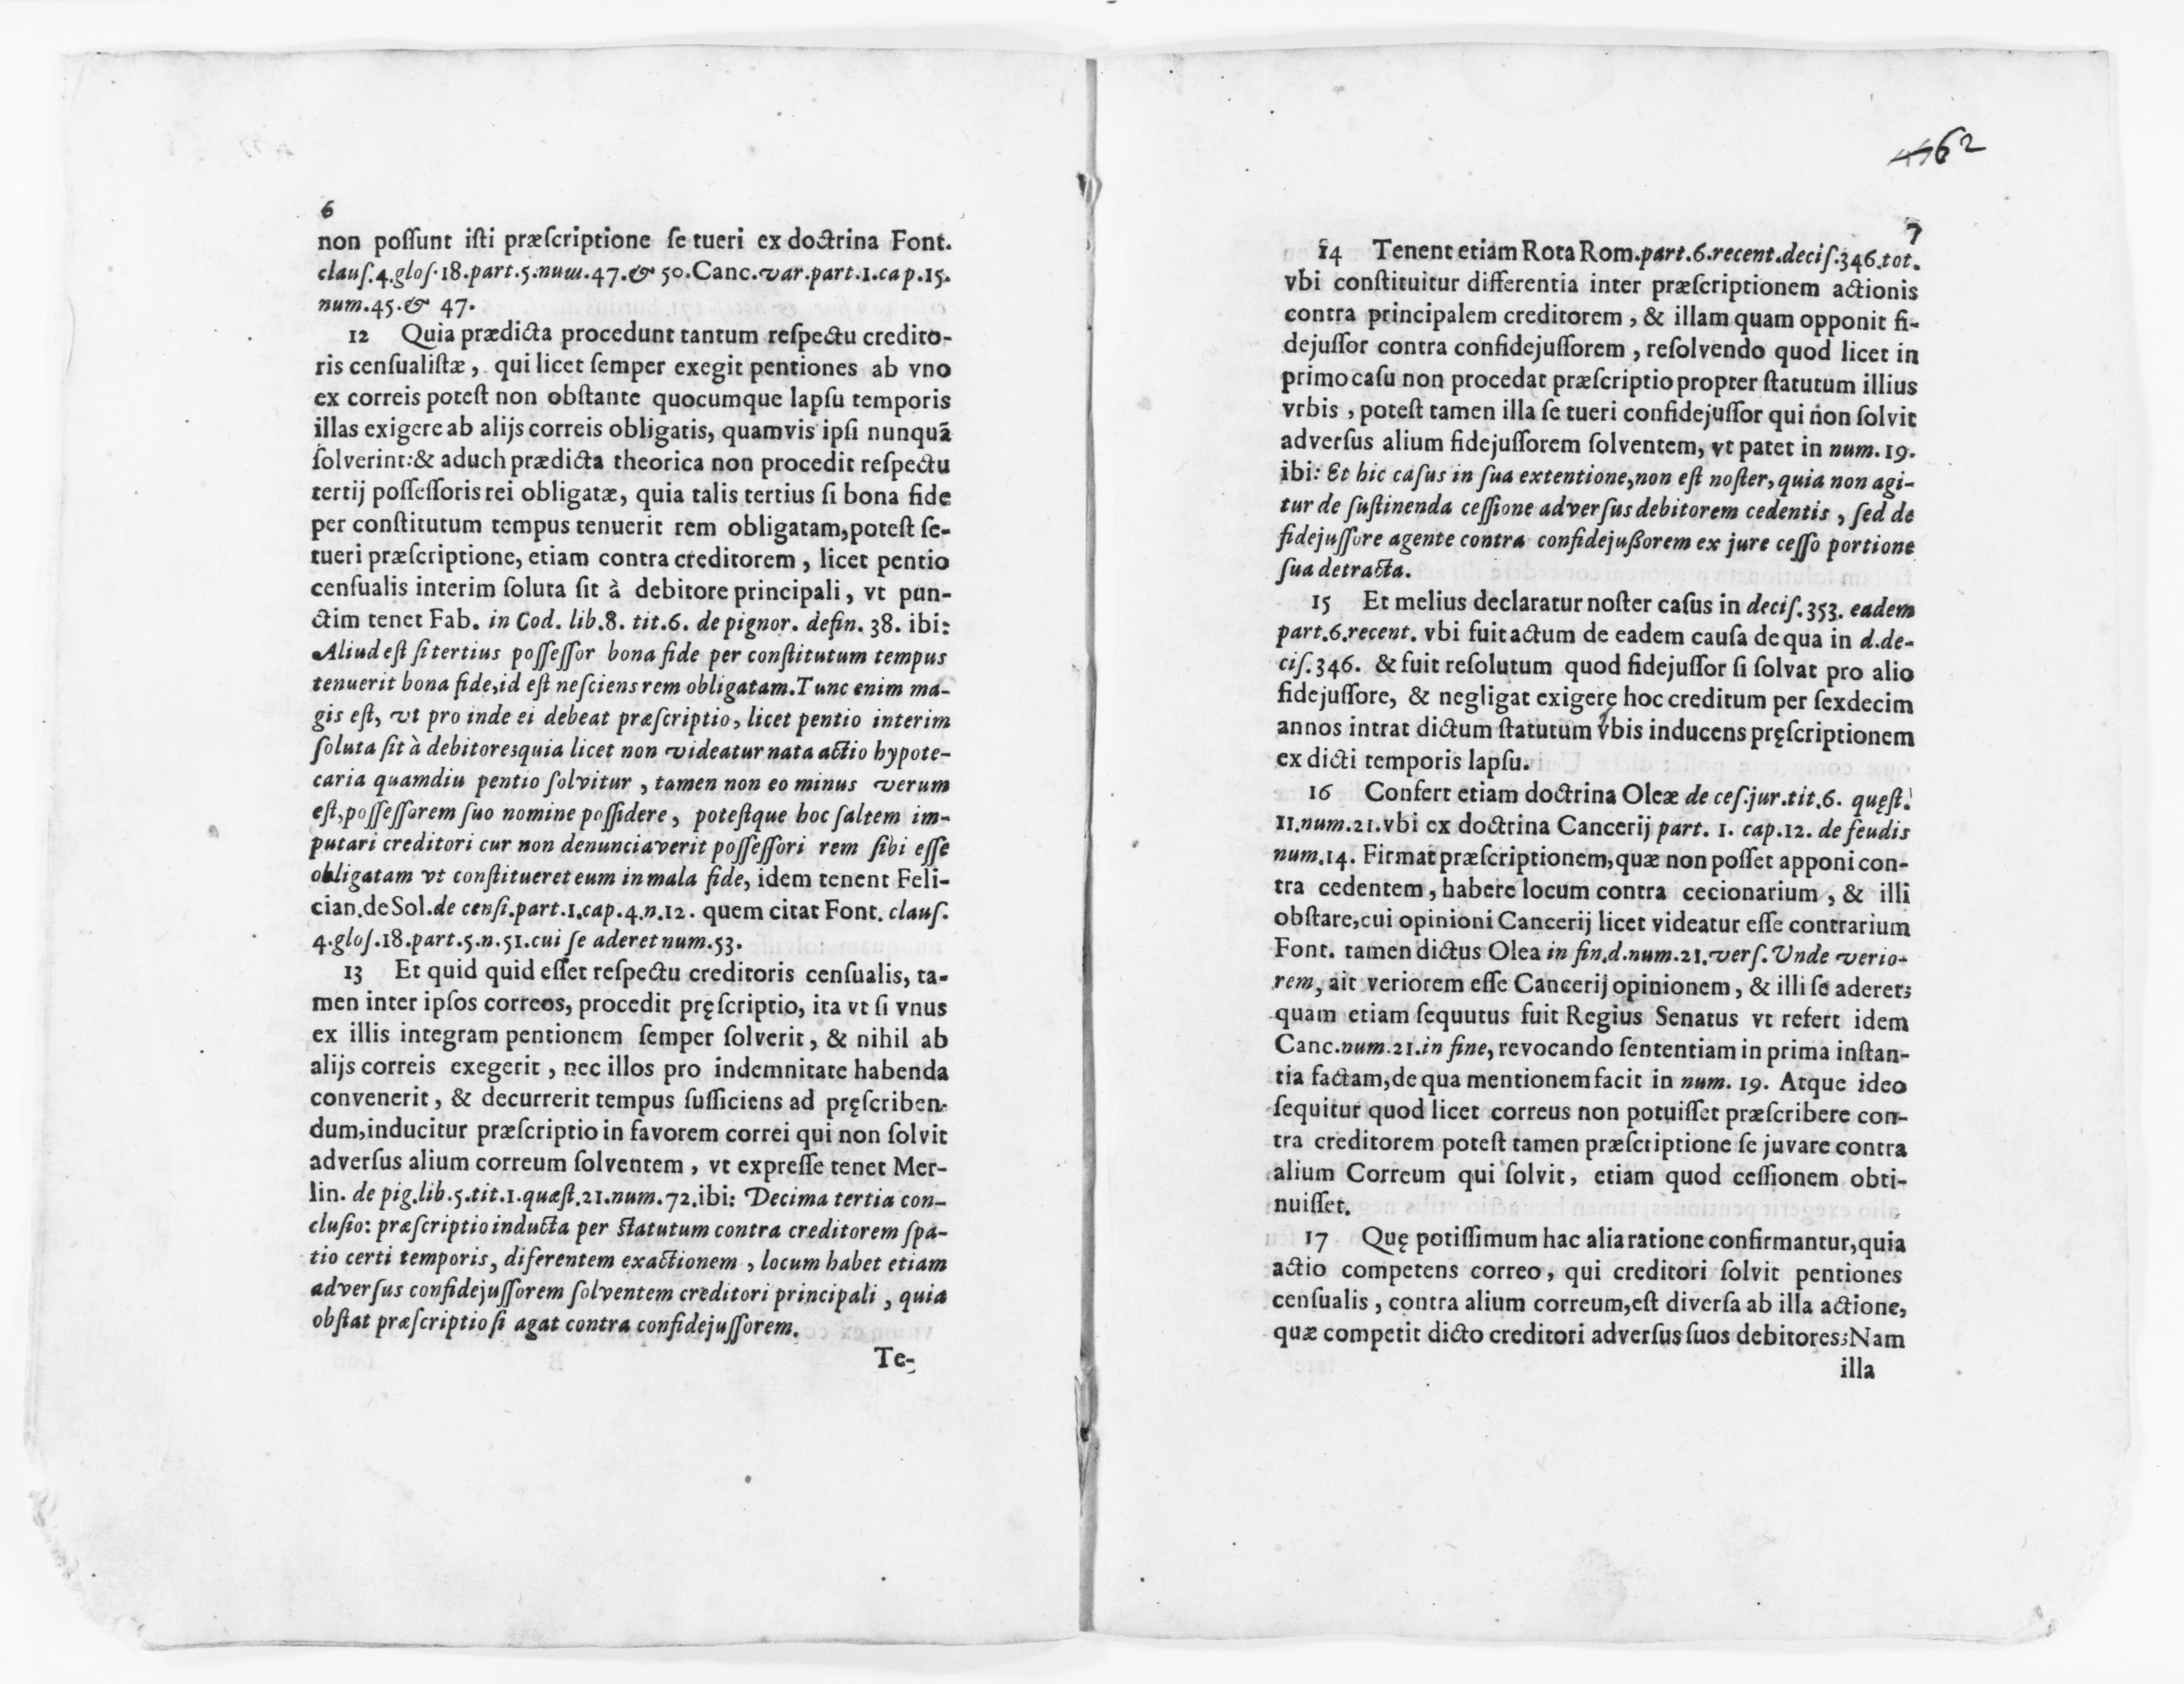 6
non poſſunt iſti præſcriptione ſe tueri ex doctrina Font.
clauſ.4.gloſ.18.part.5.num.47.& 50.Canc.var.part.1.cap.15.
num.45.& 47.
12 Quia prædicta procedunt tantum reſpectu credito-
ris cenſualiſtæ, qui licet ſemper exegit pentiones ab vno
ex correis poteſt non obſtante quocumque lapſu temporis
illas exigere ab alijs correis obligatis, quamvis ipſi nunquã
ſolverint:& aduch prædicta theorica non procedit reſpectu
tertij poſſeſſoris rei obligatæ, quia talis tertius ſi bona fide
per conſtitutum tempus tenuerit rem obligatam,poteſt ſe-
tueri præſcriptione, etiam contra creditorem, licet pentio
cenſualis interim ſoluta ſit à debitore principali, vt pun-
ctim tenet Fab. in Cod. lib.8. tit.6. de pignor. defin. 38. ibi:
Aliud eſt ſi tertius poſſeſſor bona fide per conſtitutum tempus
tenuerit bona fide,id eſt neſciens rem obligatam.Tunc enim ma-
gis eſt, vt pro inde ei debeat præſcriptio, licet pentio interim
ſoluta ſit à debitore;quia licet non videatur nata actio hypote-
caria quamdiu pentio ſolvitur, tamen non eo minus verum
eſt,poſſeſſorem ſuo nomine poſſidere, poteſtque hoc ſaltem im-
putari creditori cur non denunciaverit poſſeſſori rem ſibi eſſe
obligatam vt conſtitueret eum in mala fide, idem tenent Feli-
cian.de Sol.de cenſi.part.1.cap.4.n.12. quem citat Font. clauſ.
4.gloſ.18.part.5.n.51.cui ſe aderet num.53.
13 Et quid quid eſſet reſpectu creditoris cenſualis, ta-
men inter ipſos correos, procedit pręſcriptio, ita vt ſi vnus
ex illis integram pentionem ſemper ſolverit, & nihil ab
alijs correis exegerit, nec illos pro indemnitate habenda
convenerit, & decurrerit tempus ſufficiens ad pręſcriben-
dum,inducitur præſcriptio in favorem correi qui non ſolvit
adverſus alium correum ſolventem, vt expreſſe tenet Mer-
lin. de pig.lib.5.tit.1.quæſt.21.num.72.ibi: Decima tertia con-
cluſio: præſcriptio inducta per ſtatutum contra creditorem ſpa-
tio certi temporis, diferentem exactionem, locum habet etiam
adverſus confidejuſſorem ſolventem creditori principali, quia
obſtat præſcriptio ſi agat contra confidejuſſorem.
Te-
62
7
14 Tenent etiam Rota Rom.part.6.recent.deciſ.346.tot.
vbi conſtituitur differentia inter præſcriptionem actionis
contra principalem creditorem, & illam quam opponit fi-
dejuſſor contra confidejuſſorem, reſolvendo quod licet in
primo caſu non procedat præſcriptio propter ſtatutum illius
vrbis, poteſt tamen illa ſe tueri confidejuſſor qui non ſolvit
adverſus alium fidejuſſorem ſolventem, vt patet in num.19.
ibi: Et hic caſus in ſua extentione,non eſt noſter, quia non agi-
tur de ſuſtinenda ceſſione adverſus debitorem cedentis, ſed de
fidejuſſore agente contra confidejußorem ex jure ceſſo portione
ſua detracta.
15 Et melius declaratur noſter caſus in deciſ.353. eadem
part.6.recent. vbi fuit actum de eadem cauſa de qua in d.de-
ciſ.346. & fuit reſolutum quod fidejuſſor ſi ſolvat pro alio
fidejuſſore, & negligat exigere hoc creditum per ſexdecim
annos intrat dictum ſtatutum vbis inducens pręſcriptionem
ex dicti temporis lapſu.
16 Confert etiam doctrina Oleæ de ceſ.jur.tit.6. quęſt.
11.num.21.vbi ex doctrina Cancerij part. 1. cap.12. de feudis
num.14. Firmat præſcriptionem,quæ non poſſet apponi con-
tra cedentem, habere locum contra cecionarium, & illi
obſtare,cui opinioni Cancerij licet videatur eſſe contrarium
Font. tamen dictus Olea in fin.d.num.21.verſ.Unde verio-
rem, ait veriorem eſſe Cancerij opinionem, & illi ſe aderet;
quam etiam ſequutus fuit Regius Senatus vt refert idem
Canc.num.21.in fine, revocando ſententiam in prima inſtan-
tia factam,de qua mentionem facit in num. 19. Atque ideo
ſequitur quod licet correus non potuiſſet præſcribere con-
tra creditorem poteſt tamen præſcriptione ſe juvare contra
alium Correum qui ſolvit, etiam quod ceſſionem obti-
nuiſſet.
17 Quę potiſſimum hac alia ratione confirmantur,quia
actio competens correo, qui creditori ſolvit pentiones
cenſualis, contra alium correum,eſt diverſa ab illa actione,
quæ competit dicto creditori adverſus ſuos debitores;Nam
illa